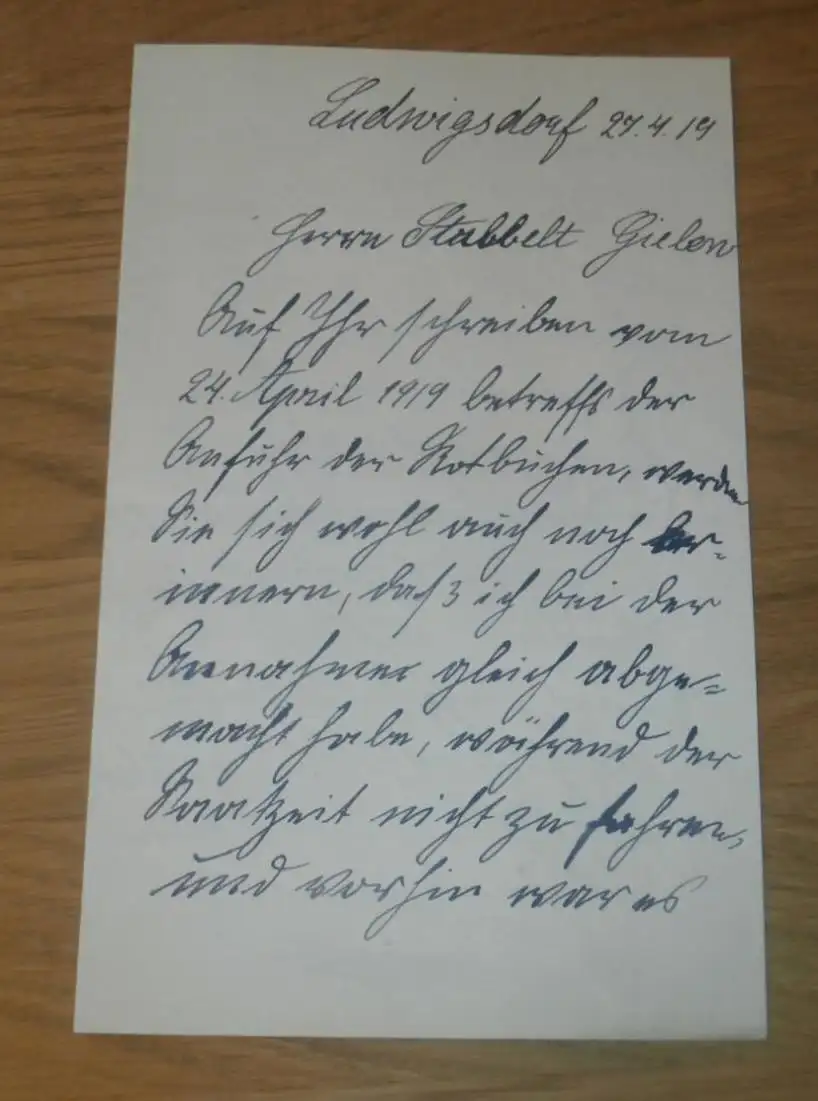 Ludwigsdorf 27.4.19
Herrn Stabbelt Gielow
Auf Ihr schreiben vom
24. April 1919 betreffs der
Anfuhr der Rotbuchen, werden
Sie sich wohl auch noch er-
innern, daß ich bei der
Annahme gleich abge=
macht habe, während der
Saatzeit nicht zu fahren,
und vorhin war es